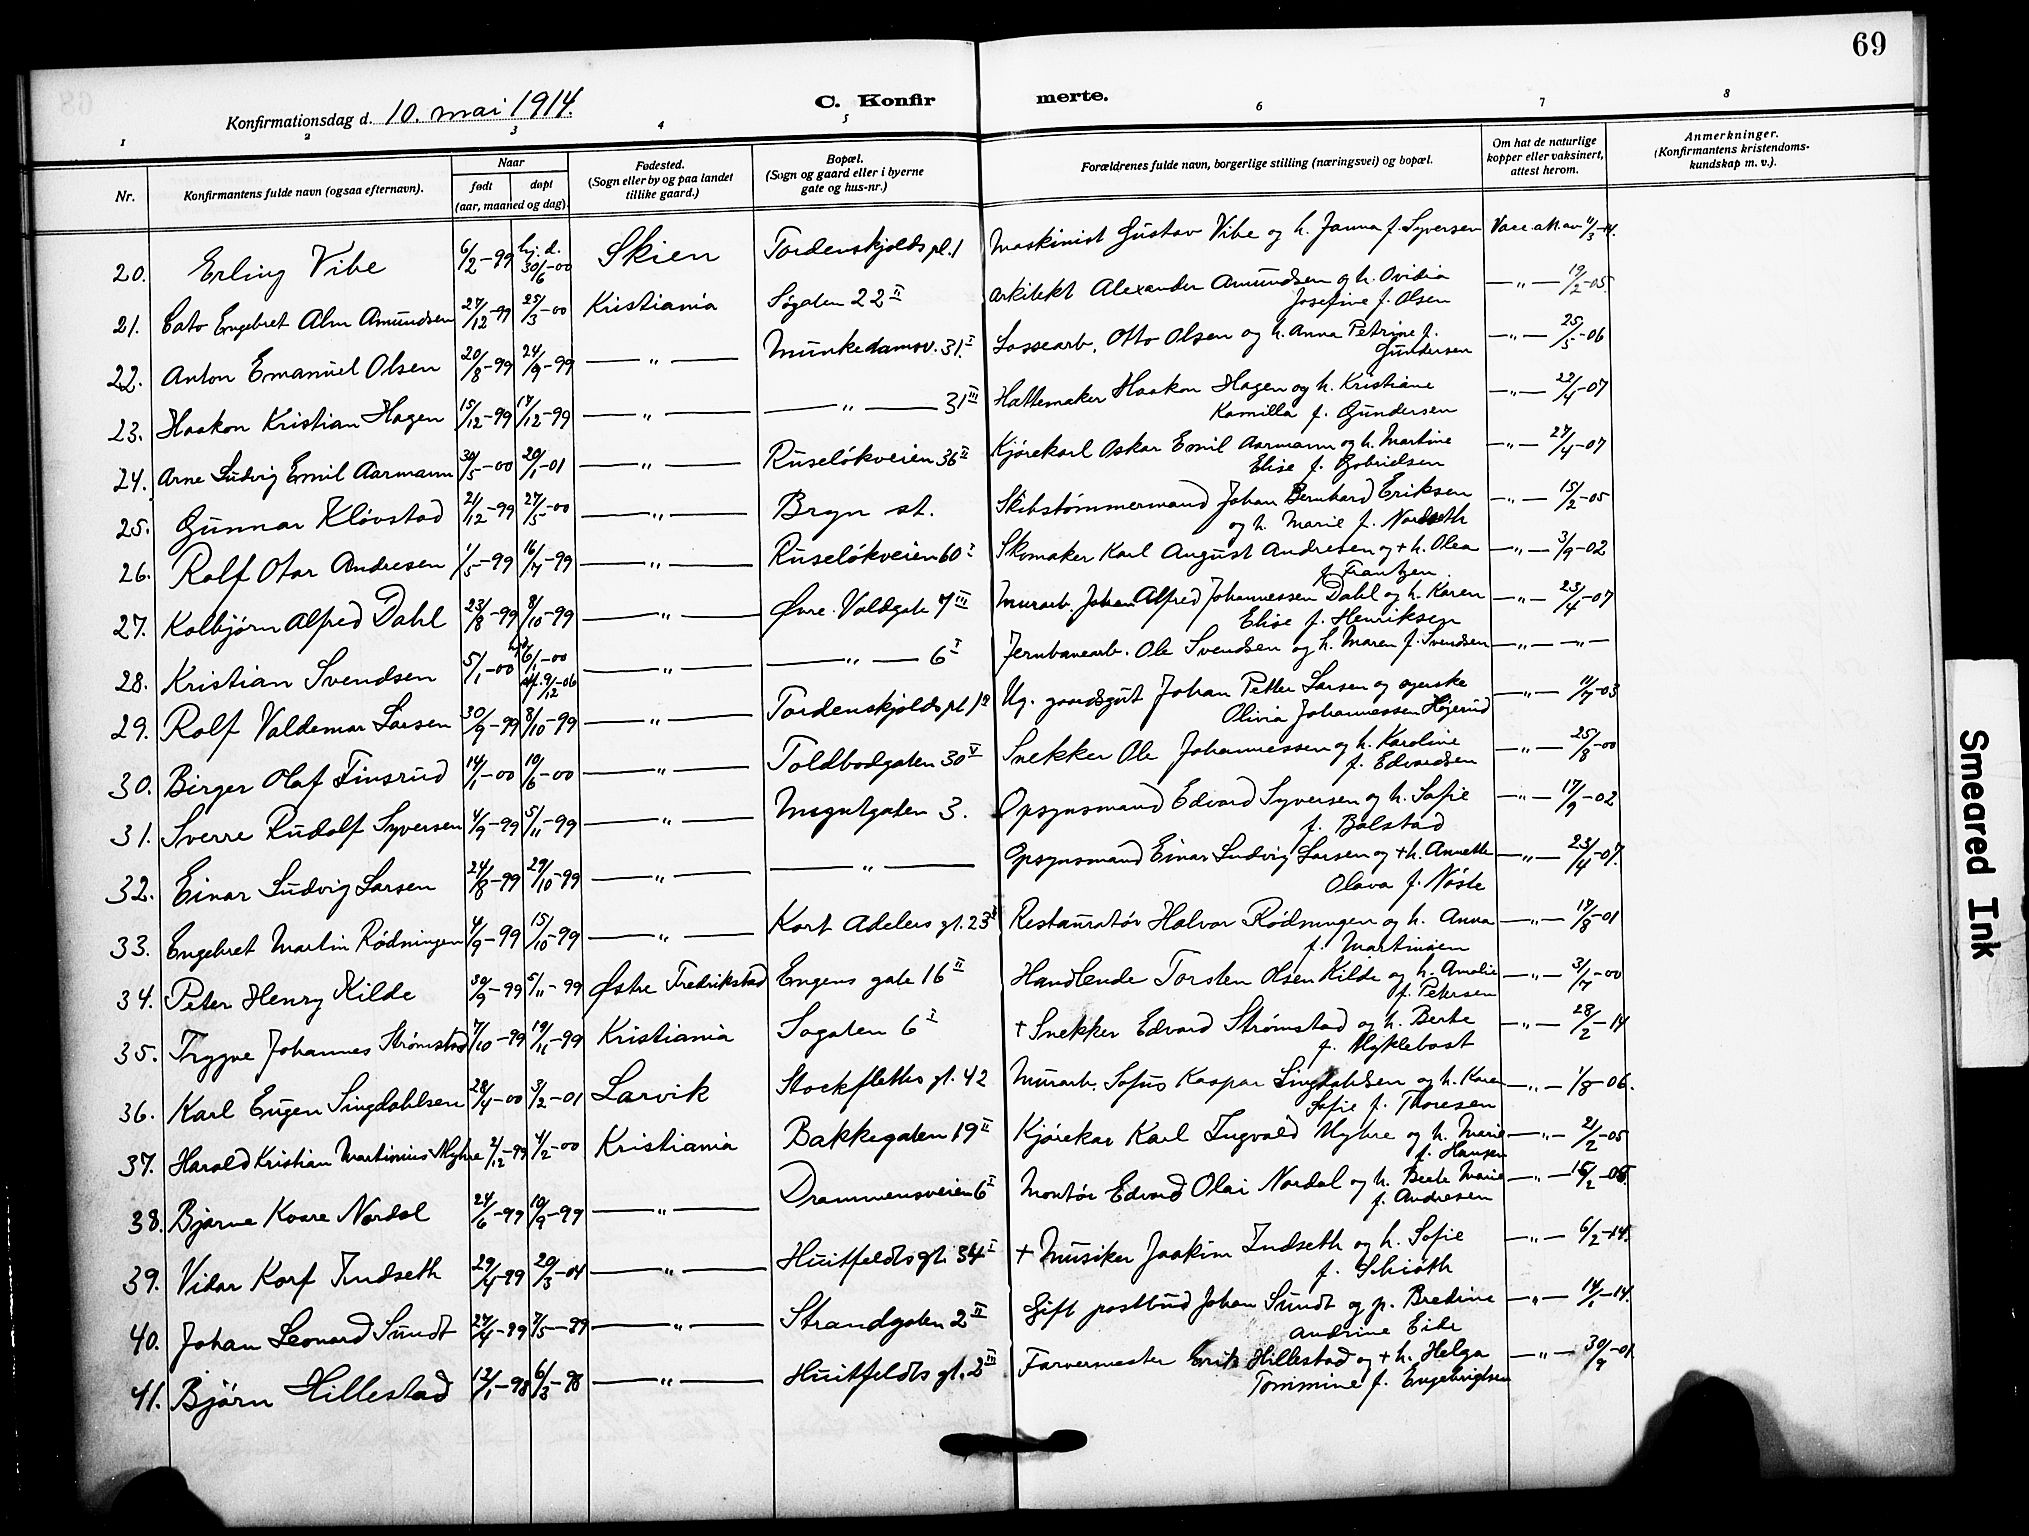 69
Konfirmationsdag d. 10. mai 1914.
C. Konfir merte.
1 2 3 4 5 6 7 8
Nr. Konfirmantens fulde navn (ogsaa efternavn). Naar født døpt (aar, maaned og dag). Fødested. (Sogn eller by og paa landet tillike gaard.) Bopæl. (Sogn og gaard eller i byerne gate og hus-nr.) Forældrenes fulde navn, borgerlige stilling (næringsvei) og bopæl. Om hat de naturlige kopper eller vaksinert, attest herom. Anmerkninger. (Konfirmantens kristendoms-kundskap m. v.).
20. Erling Vibe 6/2-99 hj. d. 30/6-00 Skien Tordenskjolds pl. 1 Maskinist Gustav Vibe og h. Janna f. Syversen Vacc. att. av 4/3-14.
21. Cato Engebret Alm Amundsen 27/12-99 25/3-00 Kristiania Søgaten 22 II Arkitekt Alexander Amundsen og h. Ovidia
Josefine f. Olsen —"— 19/2-05.
22. Anton Emanuel Olsen 20/8-99 24/9-99 —"— Munkedamsv. 31 I Lossearb. Otto Olsen og h. Anna Petrine f.
Gundersen —"— 25/5-06
23. Haakon Kristian Hagen 15/12-99 17/12-99 —"— —"— 31 III Hattemaker Haakon Hagen og h. Kristiane
Kamilla f. Gundersen —"— 22/4-07
24. Arne Ludvig Emil Aarmann 30/5-00 20/1-01 —"— Ruseløkveien 36 II Kjørekarl Oskar Emil Aarmann og h. Martine
Elise f. Gabrielsen —"— 27/4-07
25. Gunnar Kløvstad 21/12-99 27/5-00 —"— Bryn st. Skibstømmermand Johan Bernhard Eriksen
og h. Marie f. Nordseth —"— 15/2-05
26. Rolf Otar Andresen 1/5-99 16/7-99 —"— Ruseløkveien 60 I Skomaker Karl August Andresen og + h. Olea
f. Frantzen —"— 3/9-02
27. Kolbjørn Alfred Dahl 23/8-99 8/10-99 —"— Øvre Voldgate 7 III Murarb. Johan Alfred Johannessen Dahl og h. Karen
Elise f. Henriksen —"— 23/4-07
28. Kristian Svendsen 5/1-00 6/1-00 9/12-06 —"— —"— 6 I Jernbanearb. Ole Svendsen og h. Maren f. Svendsen —"— —"—
29. Rolf Valdemar Larsen 30/9-99 8/10-99 —"— Tordenskjolds pl 1a Ug. gaardsgut Johan Petter Larsen og syerske
Olivia Johannessen Høgerud —"— 11/7-03
30. Birger Olaf Finsrud 14/1-00 10/6-00 —"— Toldbodgaten 30 V Snekker Ole Johannessen og h. Karoline
f. Edvardsen —"— 25/8-00
31. Sverre Rudolf Syversen 4/9-99 5/11-99 —"— Myntgaten 3. Opsynsmand Edvard Syversen og h. Sofie
f. Bolstad —"— 17/9-02
32. Einar Ludvig Larsen 24/8-99 29/10-99 —"— —"— Opsynsmand Einar Ludvig Larsen og + h. Annette
Olava f. Nøste —"— 23/4-07.
33. Engebret Martin Rødningen 4/9-99 15/10-99 —"— Kort Adelers gt. 23 Restauratør Halvor Rødningen og h. Anna
f. Martinsen —"— 17/8-01
34. Peter Henry Kilde 30/9-99 5/11-99 Østre Fredrikstad Engens gate 16 II Handlende Torsten Olsen Kilde og h. Amalie
f. Petersen —"— 3/7-00
35. Trygve Johannes Strømstad 7/10-99 19/11-99 Kristiania Søgaten 6 I + Snekker Edvard Strømstad og h. Berte
f. Myklebost —"— 28/2-14
36. Karl Eugen Singdahlsen 28/4-00 3/2-01 Larvik Stockfleths gt. 42 Murarb. Sofus Kaspar Singdahlsen og h. Karen
Sofie f. Thoresen —"— 1/8-06.
37. Harald Kristian Martinius Myhre 2/12-99 4/2-00 Kristiania Bakkegaten 19 II Kjørekar Karl Ingvald Myhre og h. Marie
f. Hansen —"— 21/2-05
38. Bjarne Kaare Nordal 24/6-99 10/9-99 —"— Drammensveien 6 I Montør Edvard Olai Nordal og h. Berte Marie
f. Andresen —"— 15/2-05
39. Vidar Korf Indseth 29/4-99 20/3-04 —"— Huitfeldts gt. 34 I + Musiker Joakim Indseth og h. Sofie
f. Schiøth —"— 6/2-14.
40. Johan Leonard Sundt 27/4-99 7/5-99 —"— Strandgaten 2 II Gift postbud Johan Sundt og p. Bredine
Andrine Eide —"— 14/1-14.
41. Bjørn Hillestad 12/1-98 6/3-98 —"— Huitfeldts gt. 2 III Farvermester Hillestad og + h. Helga
Tommine f. Engebrigtsen —"— 30/9-01
Smeared Ink